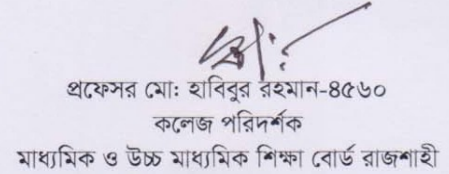 প্রফেসর মোঃ হাবিবুর রহমান-৪৫৬০
কলেজ পরিদর্শক
মাধ্যমিক ও উচ্চ মাধ্যমিক শিক্ষা বোর্ড রাজশাহী